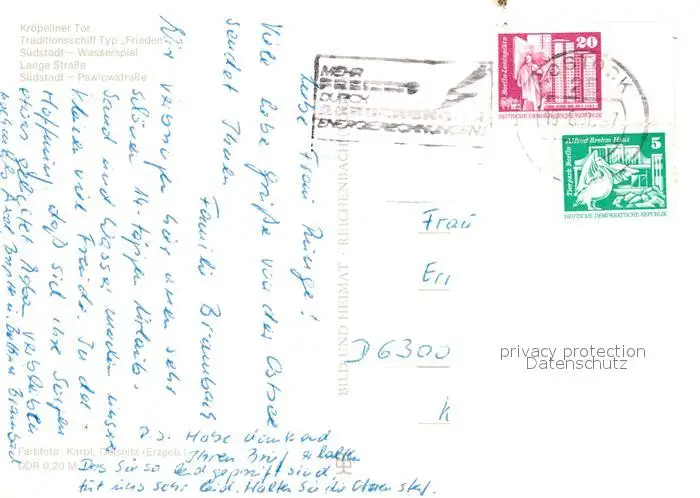 Kröpeliner Tor
Traditionsschiff Typ „Frieden"
Südstadt – Wasserspiel
Lange Straße
Südstadt – Pawlowstraße
Liebe Frau Runge!
Viele liebe Grüße von der Ostsee
sendet Ihnen
Familie Brambach
Wir verbringen hier einen sehr
schönen 14-tägigen Urlaub.
Sand und Wasser machen unserer
viel Freude. In der
Hoffnung, daß sich Ihre Sorgen
etwas gelegt haben verbleiben
Axel Brigitte u. Bettina Brambach
P.S. Habe dankend
Ihren Brief erhalten
Das Sie so leidgeprüft sind,
tut uns sehr leid. Halten Sie die Ohren steif.
Farbfoto: Karpf, Oelsnitz (Erzgeb.)
DDR 0,20 M
BILD UND HEIMAT · REICHENBACH
MEHR
DURCH
ENERGIERECHNUNGEN
Berlin-Leninplatz
20
DEUTSCHE DEMOKRATISCHE REPUBLIK
ROSTOCK
Tierpark Berlin
Alfred Brehm Haus
5
DEUTSCHE DEMOKRATISCHE REPUBLIK
Frau
D6300
privacy protection
Datenschutz